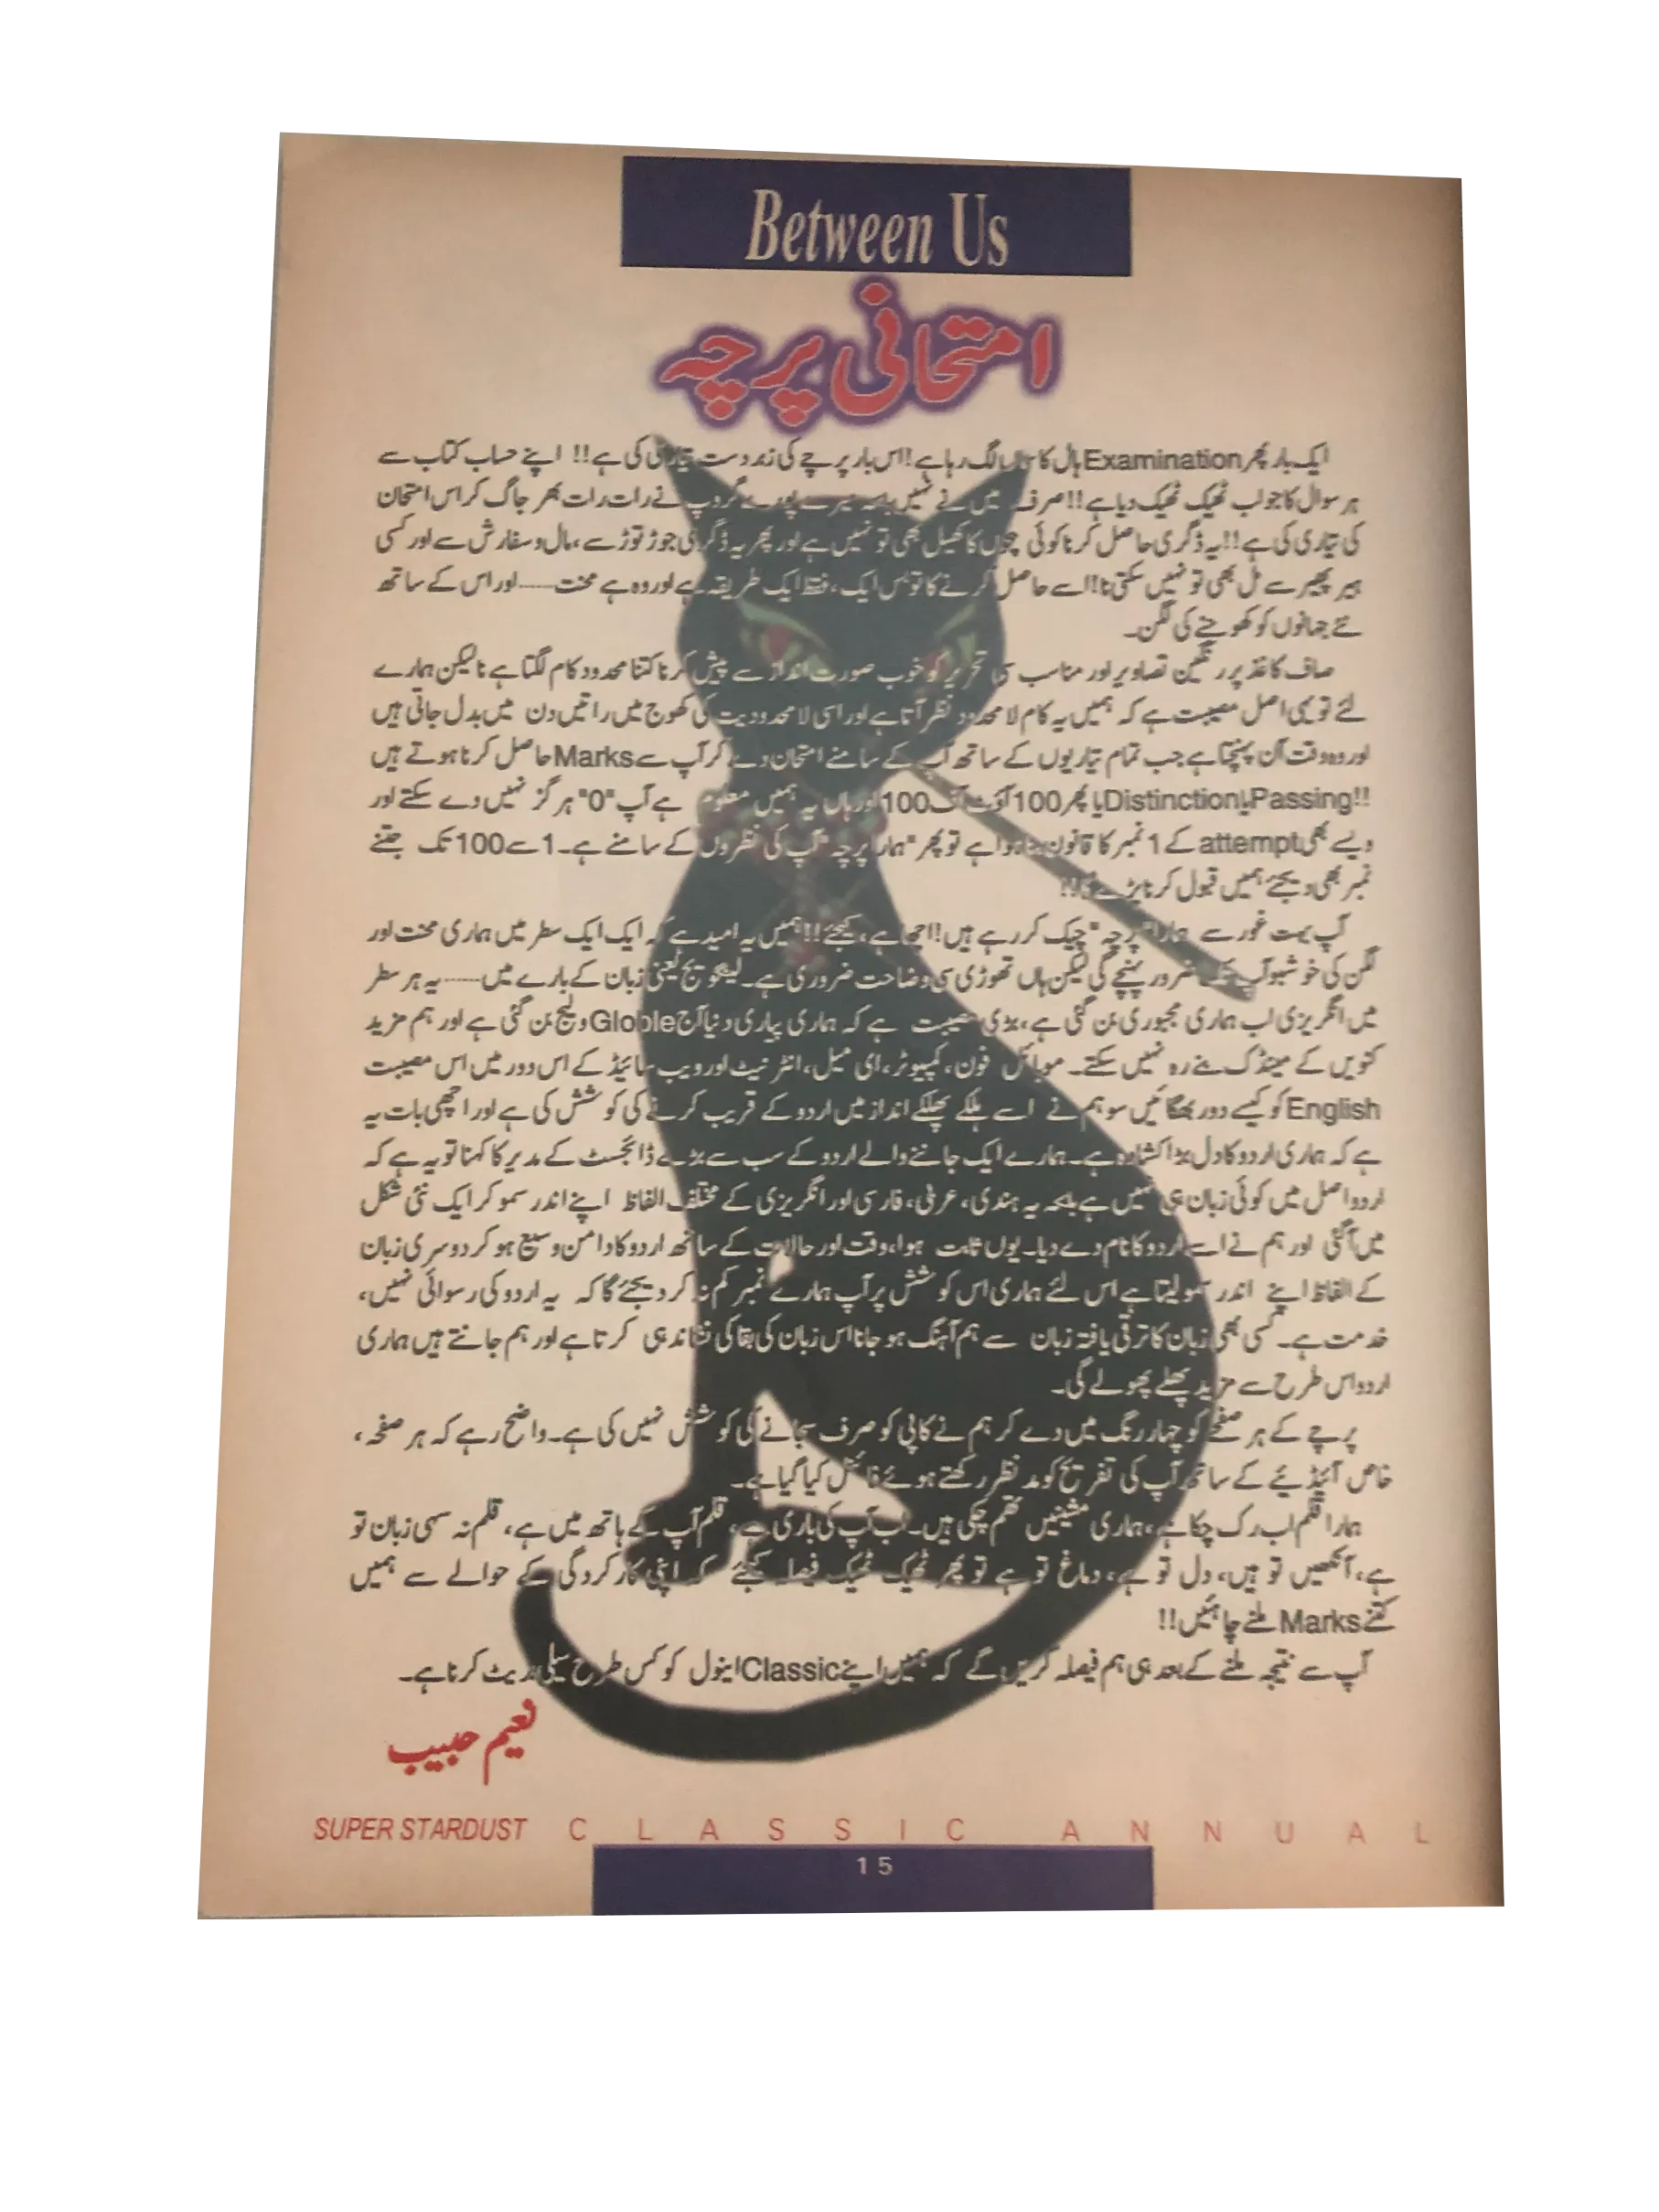 Between Us
امتحانی پرچہ
ایک بار پھر Examination ہال کا سماں لگ رہا ہے! اس بار پرچے کی زبردست تیاری کی ہے!! اپنے حساب کتاب سے
ہر سوال کا جواب ٹھیک ٹھیک دیا ہے!! صرف میں نے نہیں بلکہ میرے پورے گروپ نے رات رات بھر جاگ کر اس امتحان
کی تیاری کی ہے!! یہ ڈگری حاصل کرنا کوئی بچوں کا کھیل بھی تو نہیں ہے اور پھر یہ ڈگری جوڑ توڑ سے، مال و سفارش سے اور کسی
ہیر پھیر سے مل بھی تو نہیں سکتی نا!! اسے حاصل کرنے کا تو بس ایک، فقط ایک طریقہ ہے اور وہ ہے محنت...... اور اس کے ساتھ
نئے جہانوں کو کھوجنے کی لگن۔
صاف کاغذ پر رنگین تصاویر اور مناسب سی تحریر کو خوب صورت انداز سے پیش کرنا کتنا محدود کام لگتا ہے نا لیکن ہمارے
لئے تو یہی اصل مصیبت ہے کہ ہمیں یہ کام لا محدود نظر آتا ہے اور اسی لا محدودیت کی کھوج میں راتیں دن میں بدل جاتی ہیں
اور وہ وقت آن پہنچتا ہے جب تمام تیاریوں کے ساتھ آپ کے سامنے امتحان دے کر آپ سے Marks حاصل کرنا ہوتے ہیں
!!Passing یا Distinction یا پھر 100 آؤٹ آف 100 اور ہاں یہ ہمیں معلوم ہے آپ "0" ہر گز نہیں دے سکتے اور
ویسے بھی attempt کے 1 نمبر کا قانون بنا ہوا ہے تو پھر "ہمارا پرچہ" آپ کی نظروں کے سامنے ہے۔ 1 سے 100 تک جتنے
نمبر بھی دیجئے ہمیں قبول کرنا پڑے گا!!
آپ بہت غور سے ہمارا "پرچہ" چیک کر رہے ہیں!! اچھا ہے، کیجئے!! ہمیں یہ امید ہے کہ ایک ایک سطر میں ہماری محنت اور
لگن کی خوشبو آپ تک ضرور پہنچے گی لیکن ہاں تھوڑی سی وضاحت ضروری ہے۔ لینگویج یعنی زبان کے بارے میں...... یہ ہر سطر
میں انگریزی اب ہماری مجبوری بن گئی ہے، بڑی مصیبت ہے کہ ہماری پیاری دنیا آج Globle ولیج بن گئی ہے اور ہم مزید
کنویں کے مینڈک بنے رہ نہیں سکتے۔ موبائل فون، کمپیوٹر، ای میل، انٹر نیٹ اور ویب سائیڈ کے اس دور میں اس مصیبت
English کو کیسے دور بھگائیں سو ہم نے اسے ہلکے پھلکے انداز میں اردو کے قریب کرنے کی کوشش کی ہے اور اچھی بات یہ
ہے کہ ہماری اردو کا دل بڑا کشادہ ہے۔ ہمارے ایک جاننے والے اردو کے سب سے بڑے ڈائجسٹ کے مدیر کا کہنا تو یہ ہے کہ
اردو اصل میں کوئی زبان ہی نہیں ہے بلکہ یہ ہندی، عربی، فارسی اور انگریزی کے مختلف الفاظ اپنے اندر سمو کر ایک نئی شکل
میں آگئی اور ہم نے اسے اردو کا نام دے دیا۔ یوں ثابت ہوا، وقت اور حالات کے ساتھ اردو کا دامن وسیع ہو کر دوسری زبان
کے الفاظ اپنے اندر سمو لیتا ہے اس لئے ہماری اس کوشش پر آپ ہمارے نمبر کم نہ کر دیجئے گا کہ یہ اردو کی رسوائی نہیں،
خدمت ہے۔ کسی بھی زبان کا ترقی یافتہ زبان سے ہم آہنگ ہو جانا اس زبان کی بقا کی نشاندہی کرتا ہے اور ہم جانتے ہیں ہماری
اردو اس طرح سے مزید پھلے پھولے گی۔
پرچے کے ہر صفحے کو چہار رنگ میں دے کر ہم نے کاپی کو صرف سجانے کی کوشش نہیں کی ہے۔ واضح رہے کہ ہر صفحہ،
خاص آئیڈیئے کے ساتھ آپ کی تفریح کو مد نظر رکھتے ہوئے فائنل کیا گیا ہے۔
ہمارا قلم اب رک چکا ہے، ہماری مشینیں تھم چکی ہیں۔ اب آپ کی باری ہے، قلم آپ کے ہاتھ میں ہے، قلم نہ سہی زبان تو
ہے، آنکھیں تو ہیں، دل تو ہے، دماغ تو ہے تو پھر ٹھیک ٹھیک فیصلہ کیجئے کہ اپنی کارکردگی کے حوالے سے ہمیں
کتنے Marks ملنے چاہئیں!!
آپ سے نتیجہ ملنے کے بعد ہی ہم فیصلہ کریں گے کہ ہمیں اپنے Classic اینول کو کس طرح سیلی بریٹ کرنا ہے۔
نعیم حبیب
SUPER STARDUST CLASSIC ANNUAL
15